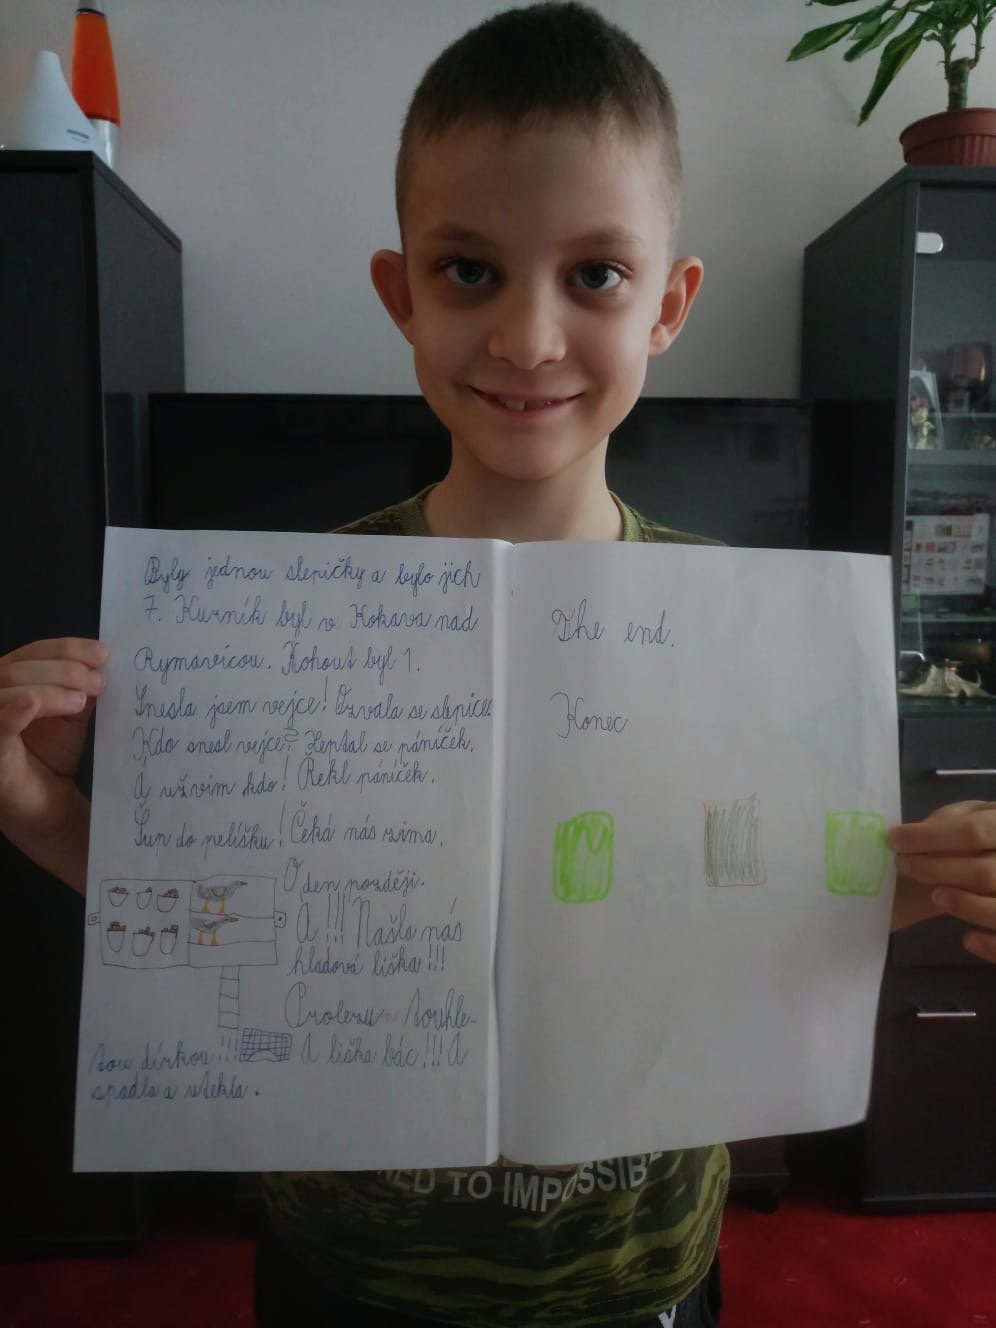 Byly jednou slepičky a bylo jich
7. Kurník byl v Kokava nad
Rymavicou. Kohout byl 1.
Snesla jsem vejce! Ozvala se slepice.
Kdo snesl vejce? Zeptal se páníček.
A už vim kdo! Řekl páníček.
Šup do pelíšku! Čeká nás zima.
O
den později.
A!!! Našla nás
hladová liška!!!
Prolezu touhle-
tou dírkou!!! A liška bác!!! A
spadla a utekla.
The end.
Konec
TO IMPOSSIB